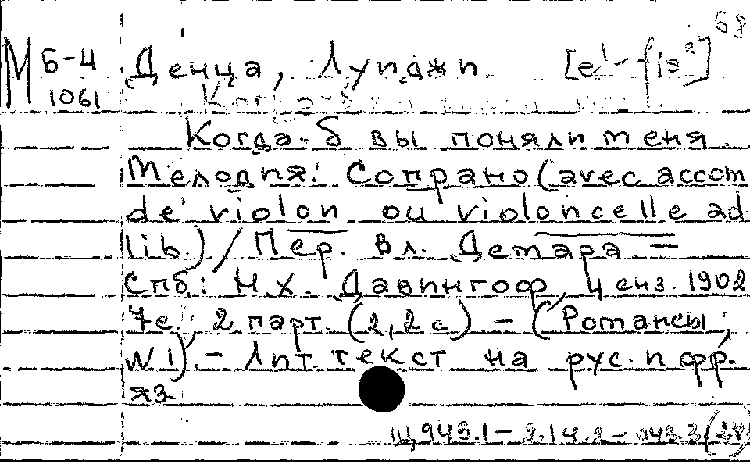 58
М Б-4 Денца, Луиджи [e¹-fis²]
1061
Когда-б вы поняли меня.
Мелодия: Сопрано (avec accom
de violon ou violoncelle ad
lib.) / Пер. Вл. Детара =
Спб.: Н.Х. Давингоф, ценз. 1902
7с. 2 парт. (2,2 с) - (Романсы;
N 1). - Лит. текст на рус. и фр.
яз